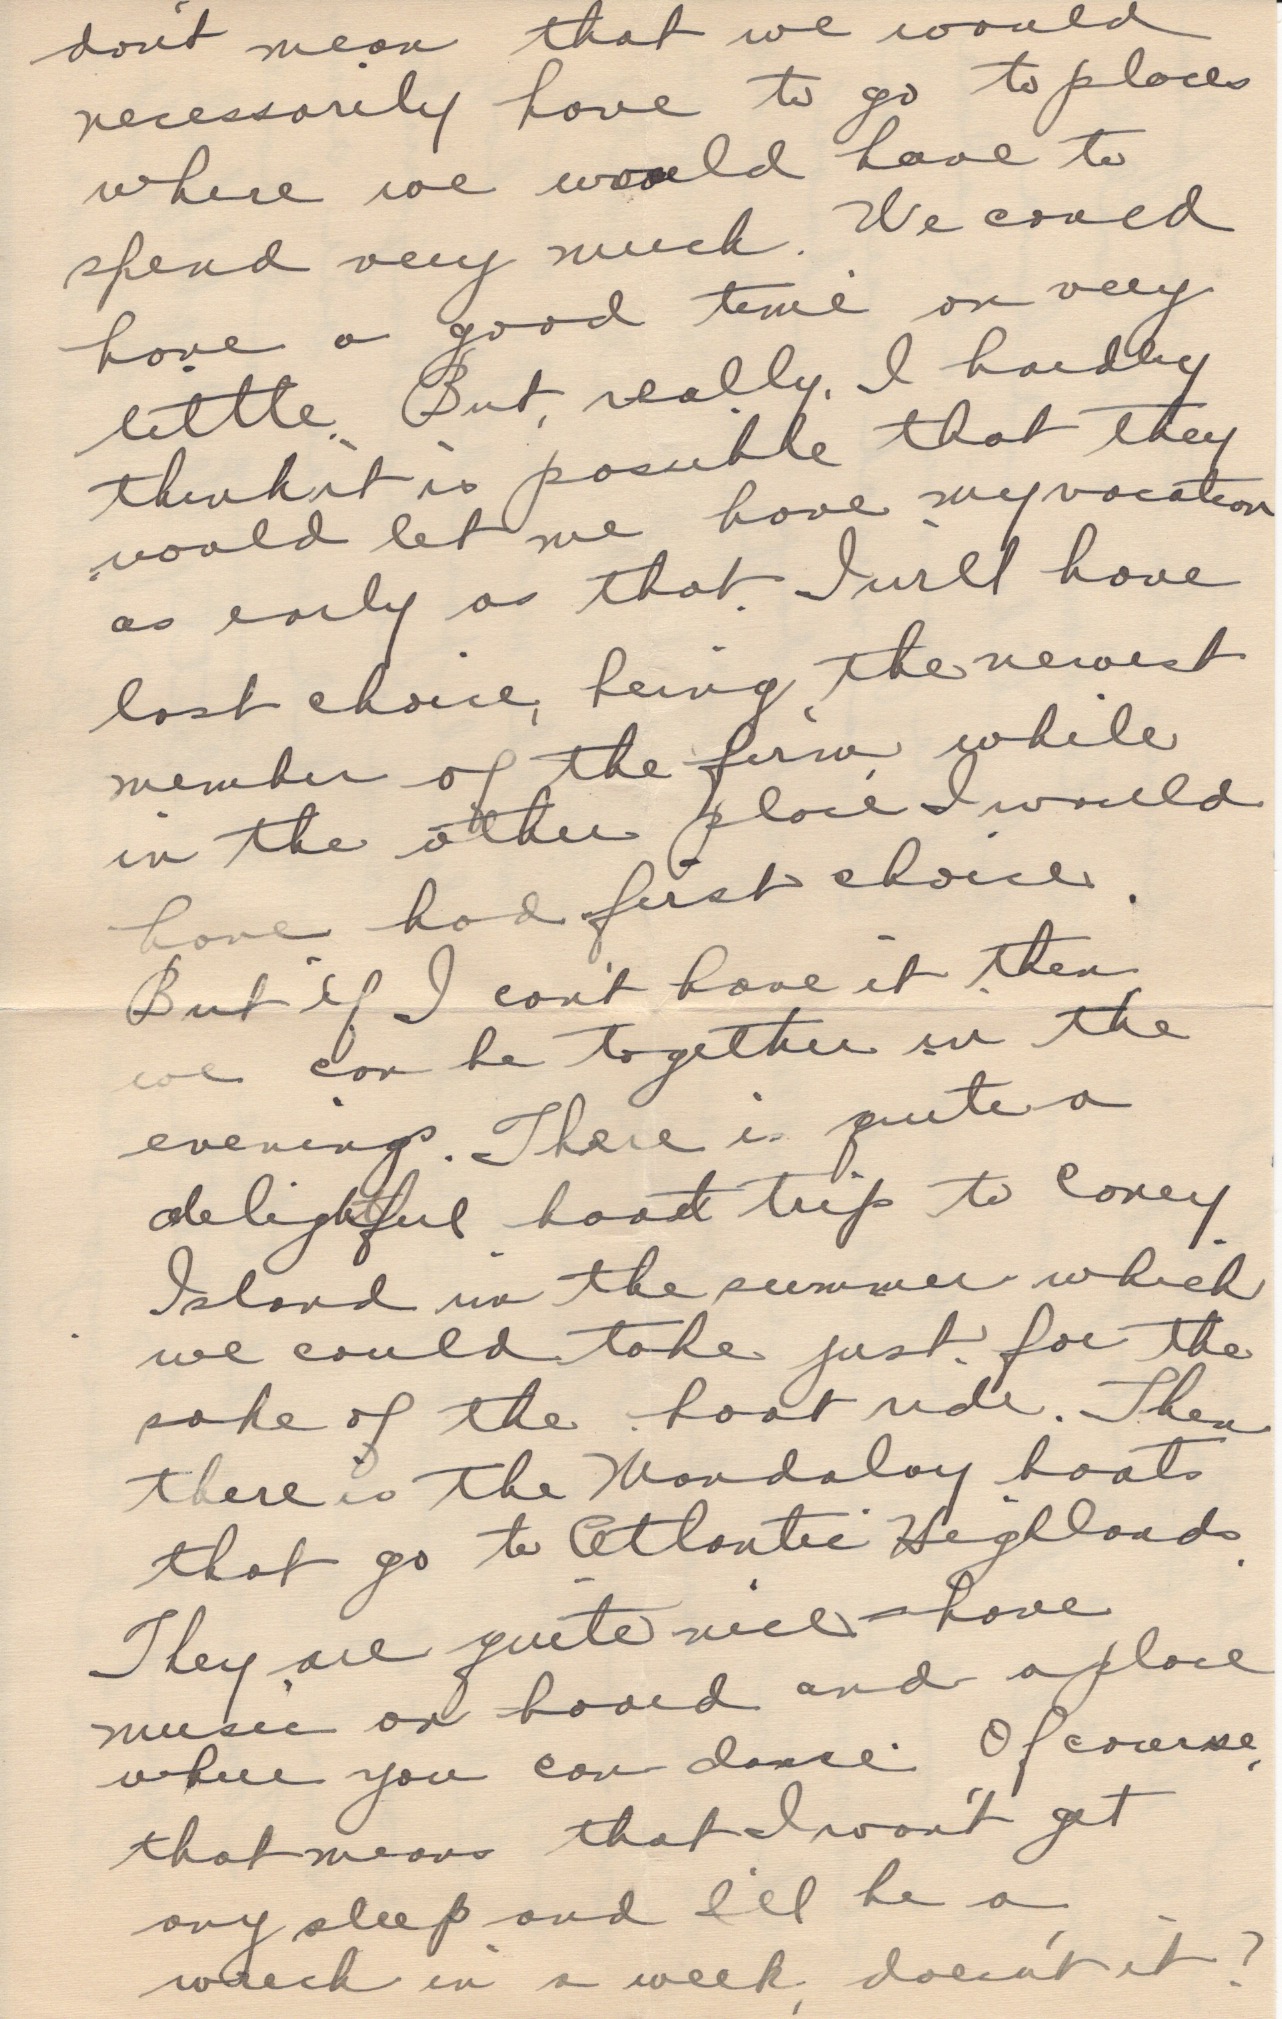 don't mean that we would
necessarily have to go to places
where we would have to
spend very much. We could
have a good time on very
little. But, really, I hardly
think it is possible that they
would let me have my vacation
as early as that. I will have
last choice, being the newest
member of the firm, while
in the other place I would
have had first choice.
But if I can't have it then
we can be together in the
evenings. There is quite a
delightful boat trip to Coney
Island in the summer which
we could take just for the
sake of the boat ride. Then
there is the Mandalay boats
that go to Atlantic Highlands.
They are quite nice - have
music on board and a place
where you can dance. Of course,
that means that I won't get
any sleep and I'll be a
wreck in a week, doesn't it?